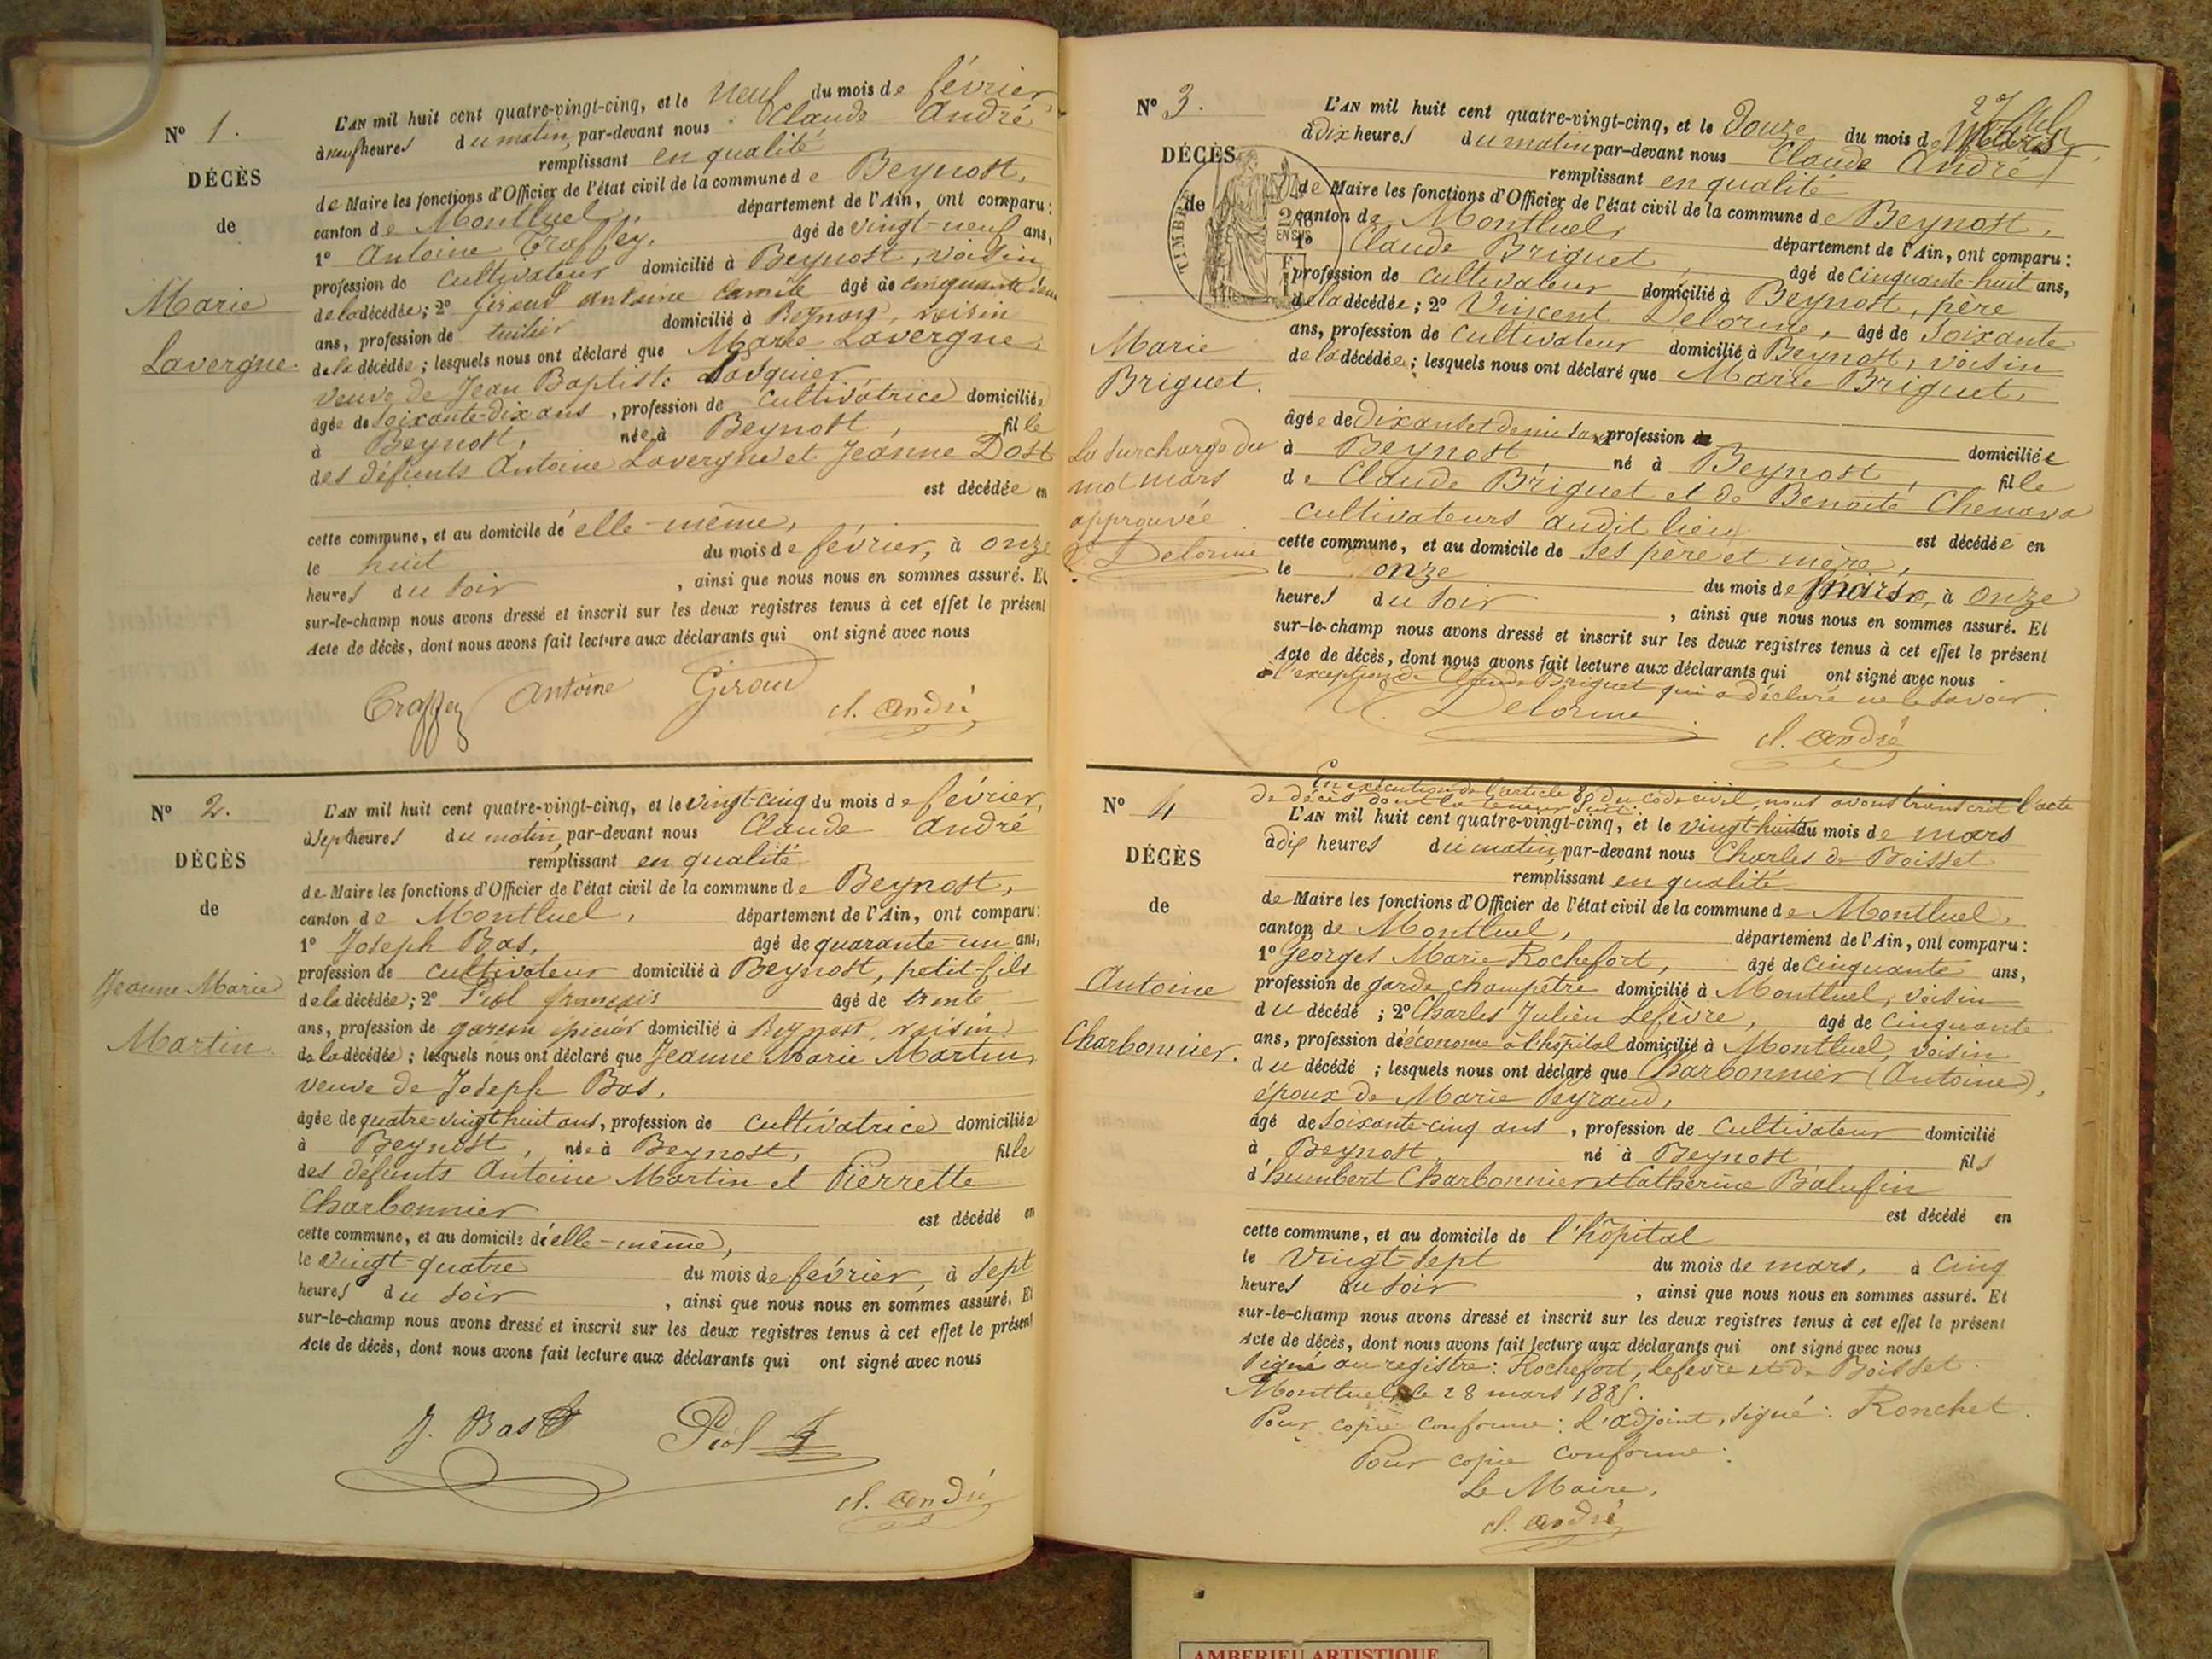 N° 1.
DÉCÈS
de
Marie
Lavergne.
L'AN mil huit cent quatre-vingt-cinq, et le neuf du mois de février,
à neuf heures du matin, par-devant nous Claude André
remplissant en qualité
de Maire les fonctions d'Officier de l'état civil de la commune de Beynost,
canton de Montluel, département de l'Ain, ont comparu:
1° Antoine Traffey, âgé de vingt-neuf ans,
profession de cultivateur domicilié à Beynost, voisin
de la décédée; 2° Giroud Antoine Camile âgé de cinquante deux
ans, profession de tuilier domicilié à Beynost, voisin
de la décédée; lesquels nous ont déclaré que Marie Lavergne,
veuve de Jean Baptiste
âgée de soixante-dix ans, profession de cultivatrice domiciliée
à Beynost, née à Beynost, fille
des défunts Antoine Lavergne et Jeanne Dost
est décédée en
cette commune, et au domicile de elle-même,
le huit du mois de février, à onze
heures du soir, ainsi que nous nous en sommes assuré. Et
sur-le-champ nous avons dressé et inscrit sur les deux registres tenus à cet effet le présent
Acte de décès, dont nous avons fait lecture aux déclarants qui ont signé avec nous
Traffey Antoine Giroud
cl. andré
N° 2.
DÉCÈS
de
Jeanne Marie
Martin
L'AN mil huit cent quatre-vingt-cinq, et le vingt-cinq du mois de février,
à sept heures du matin, par-devant nous Claude André
remplissant en qualité
de Maire les fonctions d'Officier de l'état civil de la commune de Beynost,
canton de Montluel, département de l'Ain, ont comparu:
1° Joseph Bas, âgé de quarante-un ans,
profession de cultivateur domicilié à Beynost, petit-fils
de la décédée; 2° Piol françois âgé de trente
ans, profession de garçon épicier domicilié à Beynost, voisin
de la décédée; lesquels nous ont déclaré que Jeanne Marie Martin,
veuve de Joseph Bas,
âgée de quatre-vingt huit ans, profession de cultivatrice domiciliée
à Beynost, née à Beynost, fille
des défunts Antoine Martin et Pierrette
Charbonnier est décédé en
cette commune, et au domicile d'elle-même,
le vingt-quatre du mois de février, à sept
heures du soir, ainsi que nous nous en sommes assuré. Et
sur-le-champ nous avons dressé et inscrit sur les deux registres tenus à cet effet le présent
Acte de décès, dont nous avons fait lecture aux déclarants qui ont signé avec nous
J. Bas Piol
cl. andré
N° 3.
DÉCÈS
de
TIMBRE
Marie
Briguet.
La surcharge du
mot mars
approuvée
Delorme
L'AN mil huit cent quatre-vingt-cinq, et le douze du mois de Mars,
à dix heures du matin par-devant nous Claude André
remplissant en qualité
de Maire les fonctions d'Officier de l'état civil de la commune de Beynost,
canton de Montluel, département de l'Ain, ont comparu:
1° Claude Briguet, âgé de cinquante-huit ans,
profession de cultivateur domicilié à Beynost, père
de la décédée; 2° Vincent Delorme, âgé de soixante
ans, profession de cultivateur domicilié à Beynost, voisin
de la décédée; lesquels nous ont déclaré que Marie Briguet,
âgée de dix ans et demi sans profession domiciliée
à Beynost, né à Beynost, fille
de Claude Briguet et de Benoite Chenava
cultivateurs audit lieu est décédée en
cette commune, et au domicile de ses père et mère,
le onze du mois de mars, à onze
heures du soir, ainsi que nous nous en sommes assuré. Et
sur-le-champ nous avons dressé et inscrit sur les deux registres tenus à cet effet le présent
Acte de décès, dont nous avons fait lecture aux déclarants qui ont signé avec nous
à l'exception de Claude Briguet qui a déclaré ne le savoir.
Delorme
cl. andré
N° 4
DÉCÈS
de
Antoine
Charbonnier.
En exécution de l'article 80 du code civil, nous avons transcrit l'acte
de décès dont la teneur suit:
L'AN mil huit cent quatre-vingt-cinq, et le vingt-huit du mois de mars
à dix heures du matin, par-devant nous Charles de Boisset
remplissant en qualité
de Maire les fonctions d'Officier de l'état civil de la commune de Montluel,
canton de Montluel, département de l'Ain, ont comparu:
1° Georges Marie Rochefort, âgé de cinquante ans,
profession de garde champêtre domicilié à Montluel, voisin
du décédé; 2° Charles Julien Lefèvre, âgé de cinquante
ans, profession d'économe à l'hôpital domicilié à Montluel, voisin
du décédé; lesquels nous ont déclaré que Charbonnier (Antoine),
époux de Marie Peyraud,
âgé de soixante-cinq ans, profession de cultivateur domicilié
à Beynost, né à Beynost fils
d'humbert Charbonnier et Catherine Balufin
est décédé en
cette commune, et au domicile de l'hôpital
le vingt-sept du mois de mars, à cinq
heures du soir, ainsi que nous nous en sommes assuré. Et
sur-le-champ nous avons dressé et inscrit sur les deux registres tenus à cet effet le présent
Acte de décès, dont nous avons fait lecture aux déclarants qui ont signé avec nous
Signé au registre: Rochefort, Lefèvre et de Boisset.
Montluel, le 28 mars 1885.
Pour copie conforme: L'adjoint, signé: Ronchet.
Pour copie conforme:
Le Maire,
cl. andré
AMBERIEU ARTISTIQUE